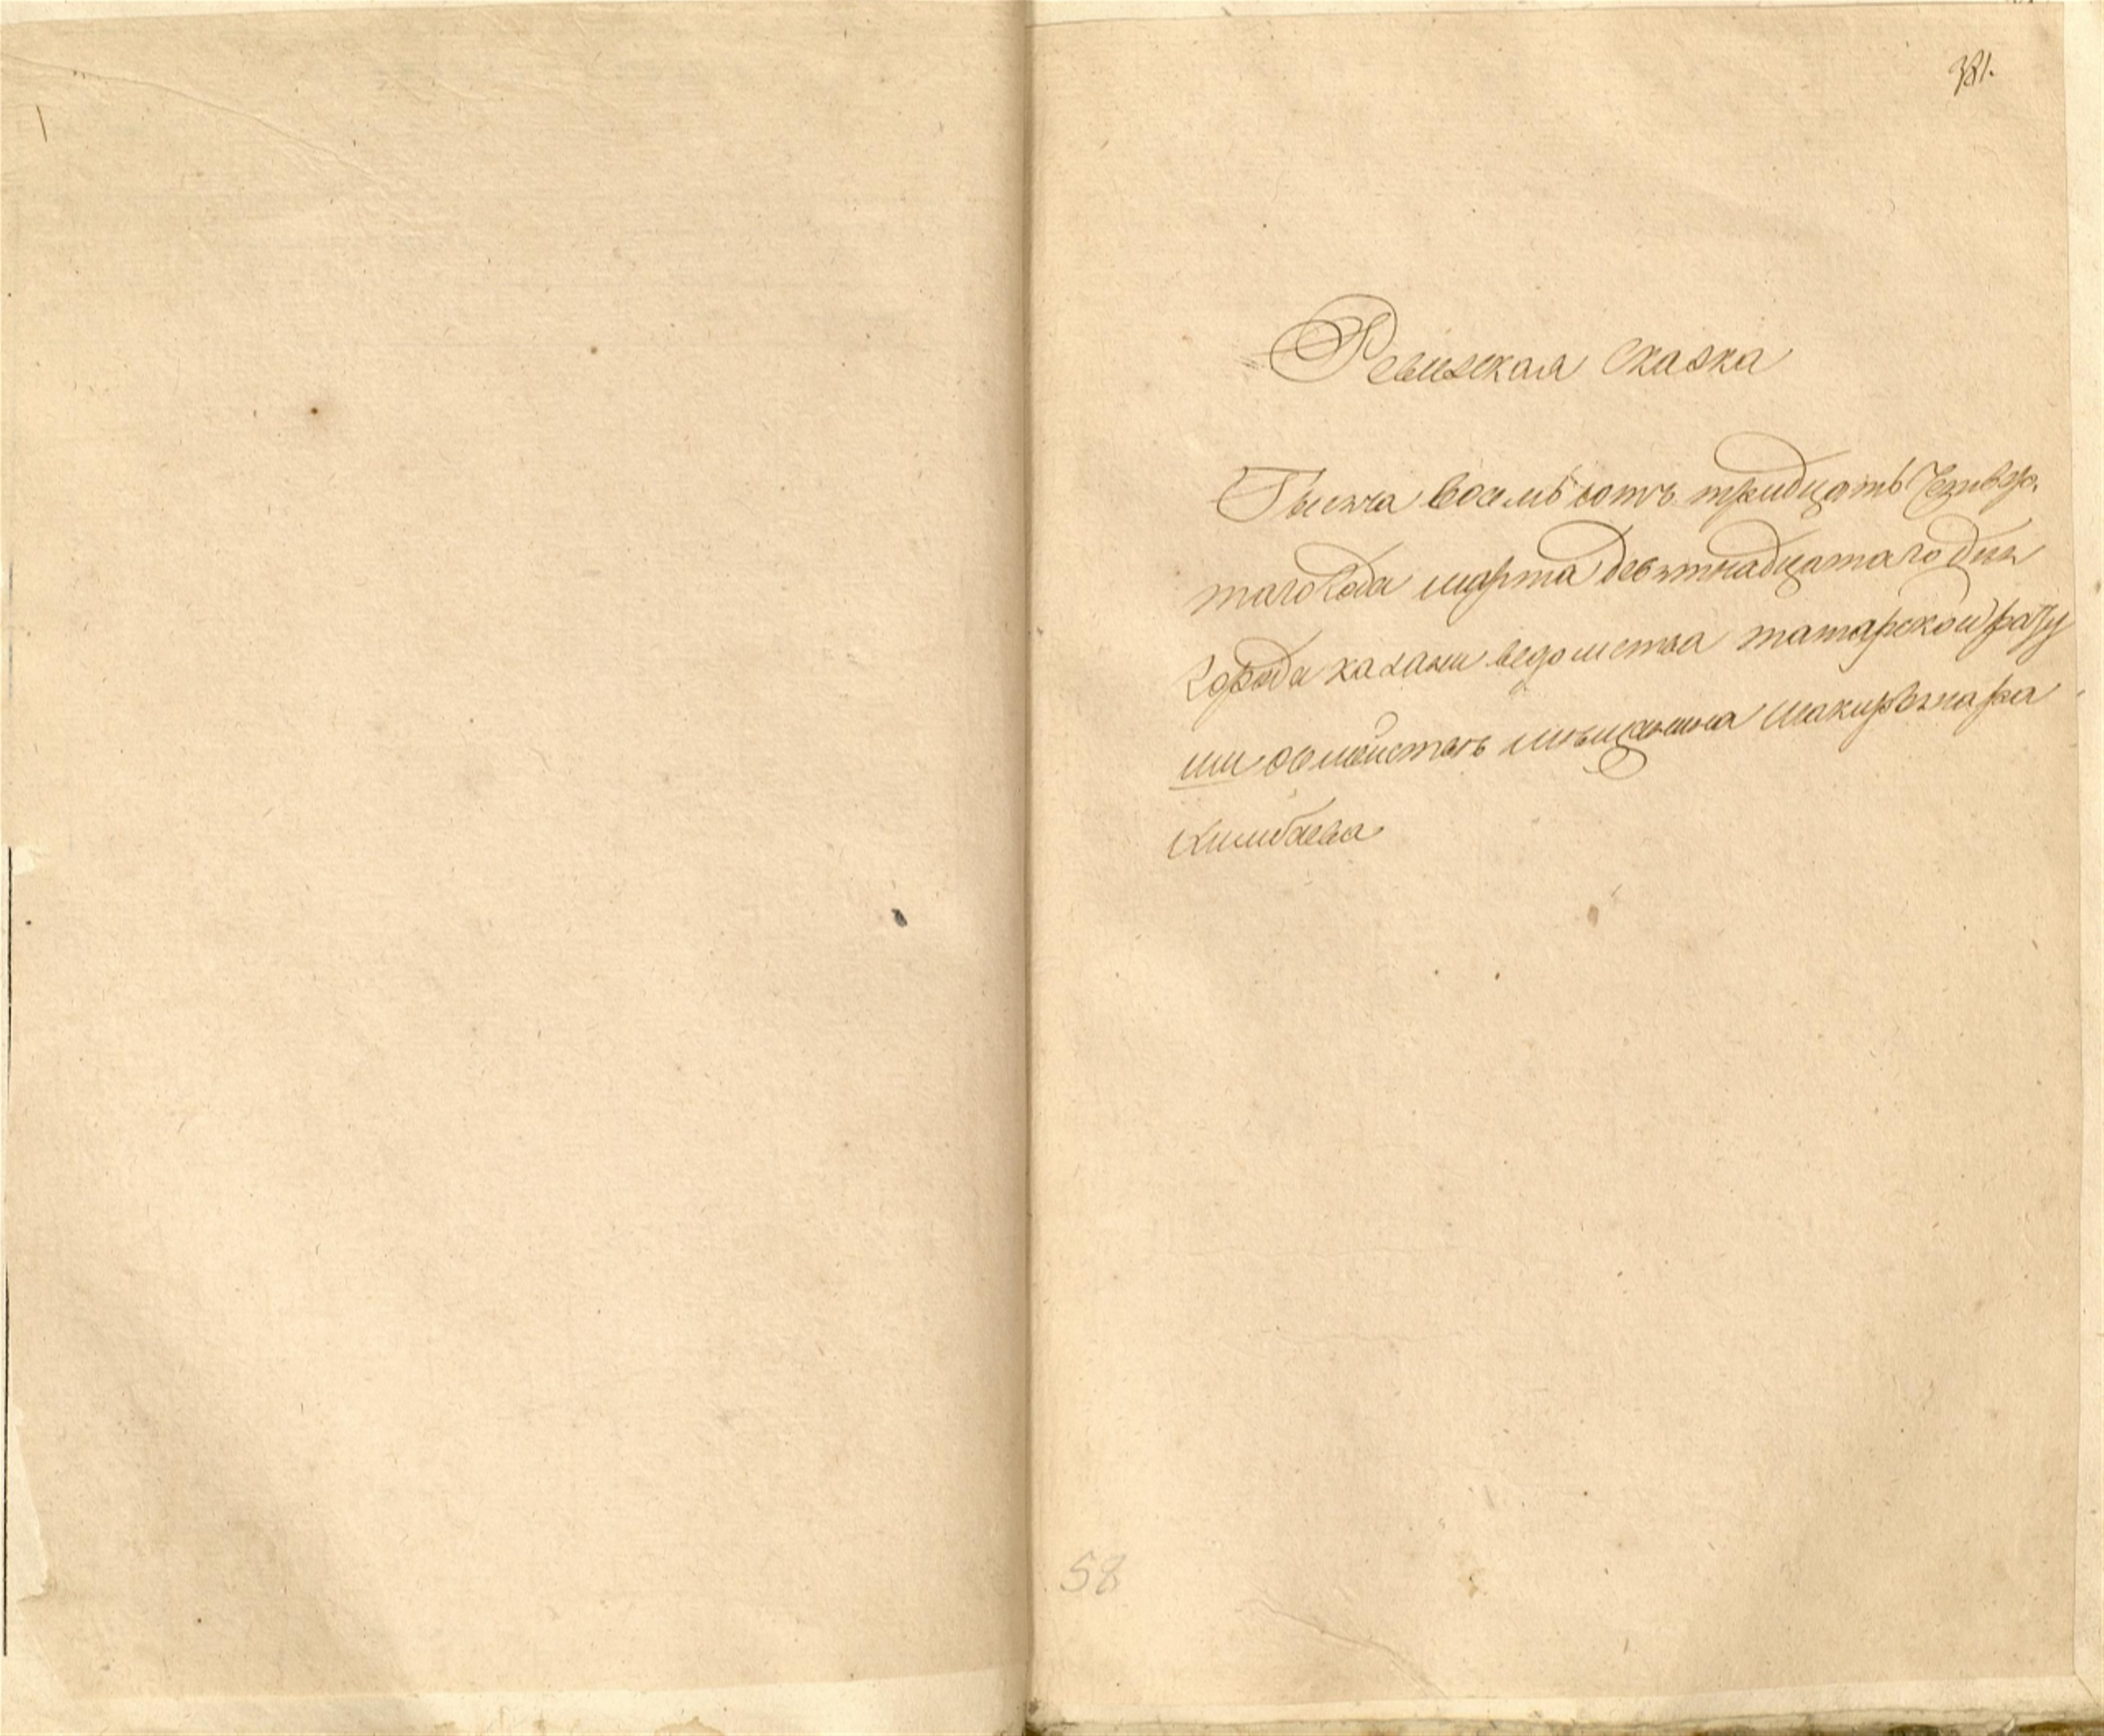 381.
Ревизская сказка
Тысяча восемьсотъ тридцать четвер
таго года марта девятнадцатаго дня
города казани ведомства татарской рату
ши о семействѣ мѣщанина
58